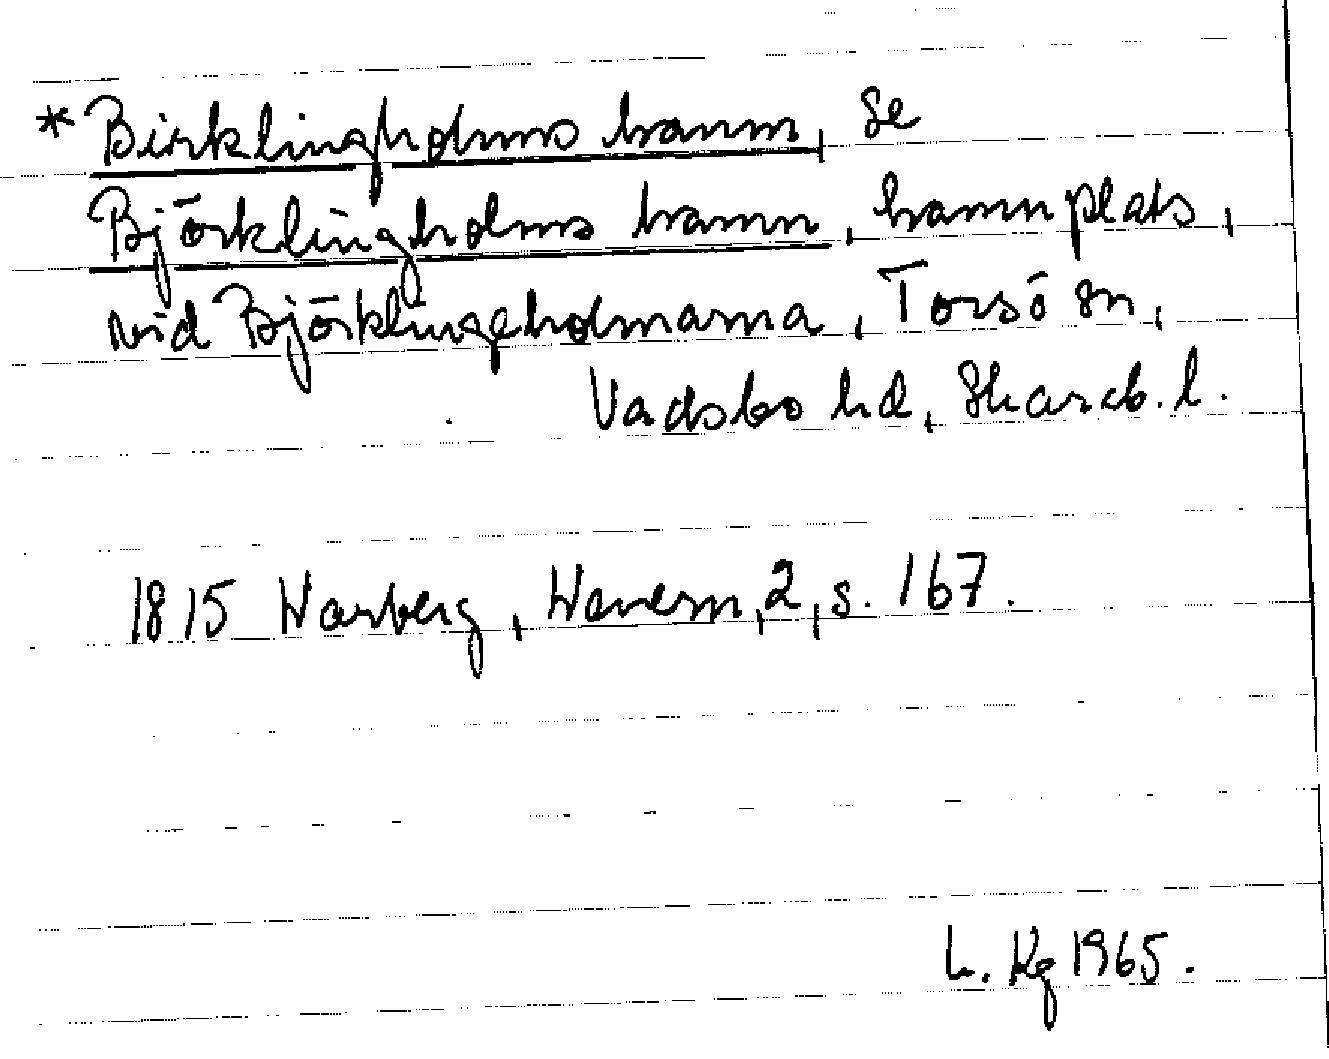 * Birklingholms hamn, se
Björklingholms hamn, hamnplats,
vid Björklingeholmarna, Torsö sn,
Vadsbo hd, Skarab. l.
1815 Warberg, Wenern, 2, s. 167.
L. Kg 1965.